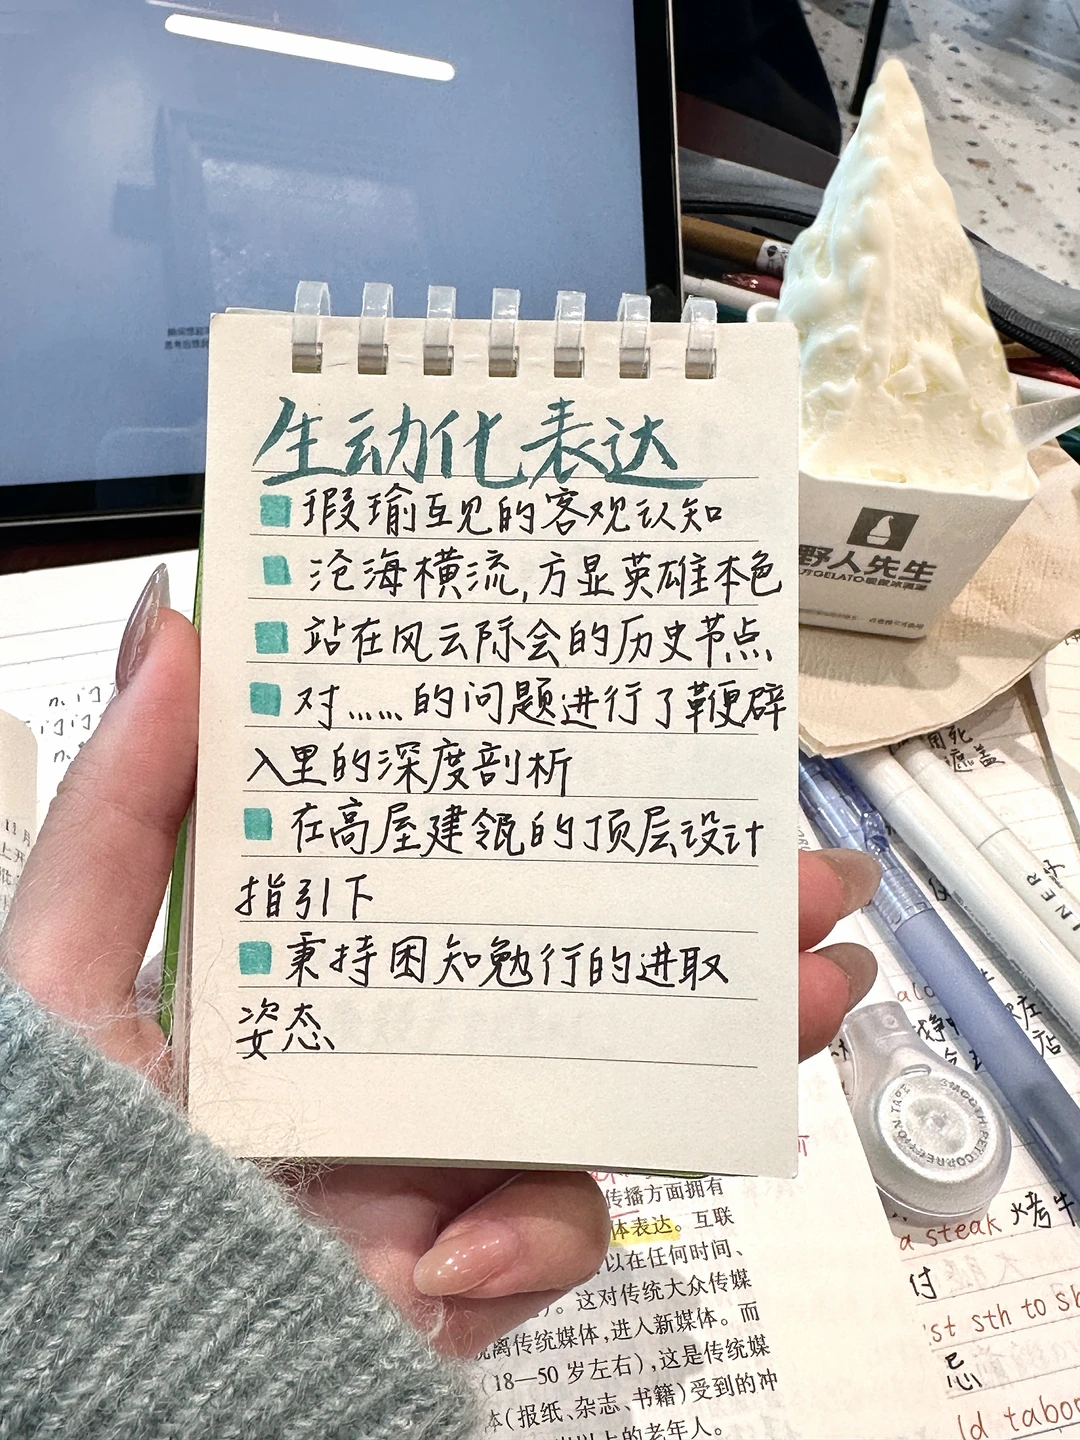 生动化表达
瑕瑜互见的客观认知
沧海横流,方显英雄本色
站在风云际会的历史节点
对……的问题进行了鞭辟
入里的深度剖析
在高屋建瓴的顶层设计
指引下
秉持困知勉行的进取
姿态
野人先生
GELATO
遮盖
INER
SMOOTH PEN CORRECTION TAPE
传播方面拥有
体表达。互联
以在任何时间、
。这对传统大众传媒
离传统媒体,进入新媒体。而
(18—50岁左右),这是传统媒
体(报纸、杂志、书籍)受到的冲
以上的老年人。
a steak 烤牛
付
st sth to sh
忌
ld tabor